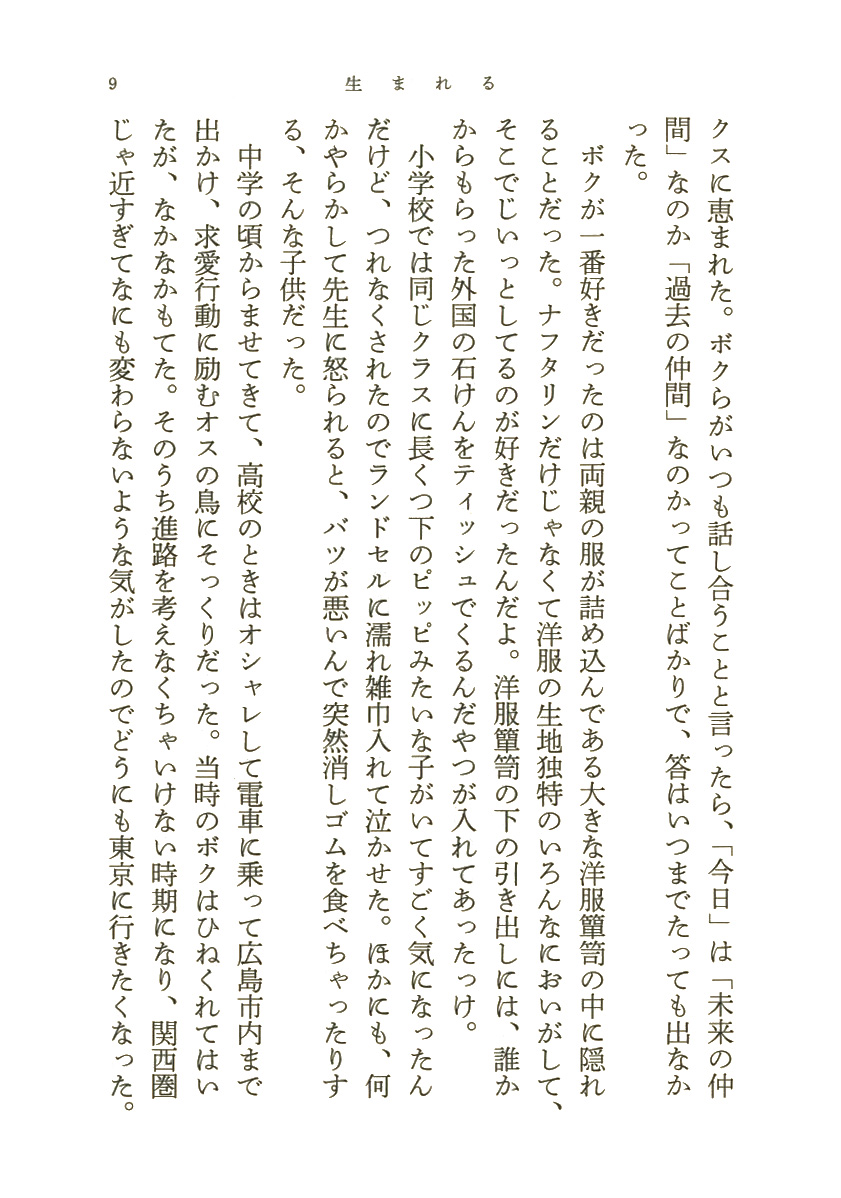 9
生まれる
クスに恵まれた。ボクらがいつも話し合うことと言ったら、「今日」は「未来の仲
間」なのか「過去の仲間」なのかってことばかりで、答はいつまでたっても出なか
った。
ボクが一番好きだったのは両親の服が詰め込んである大きな洋服簞笥の中に隠れ
ることだった。ナフタリンだけじゃなくて洋服の生地独特のいろんなにおいがして、
そこでじいっとしてるのが好きだったんだよ。洋服簞笥の下の引き出しには、誰か
からもらった外国の石けんをティッシュでくるんだやつが入れてあったっけ。
小学校では同じクラスに長くつ下のピッピみたいな子がいてすごく気になったん
だけど、つれなくされたのでランドセルに濡れ雑巾入れて泣かせた。ほかにも、何
かやらかして先生に怒られると、バツが悪いんで突然消しゴムを食べちゃったりす
る、そんな子供だった。
中学の頃からませてきて、高校のときはオシャレして電車に乗って広島市内まで
出かけ、求愛行動に励むオスの鳥にそっくりだった。当時のボクはひねくれてはい
たが、なかなかもてた。そのうち進路を考えなくちゃいけない時期になり、関西圏
じゃ近すぎてなにも変わらないような気がしたのでどうにも東京に行きたくなった。